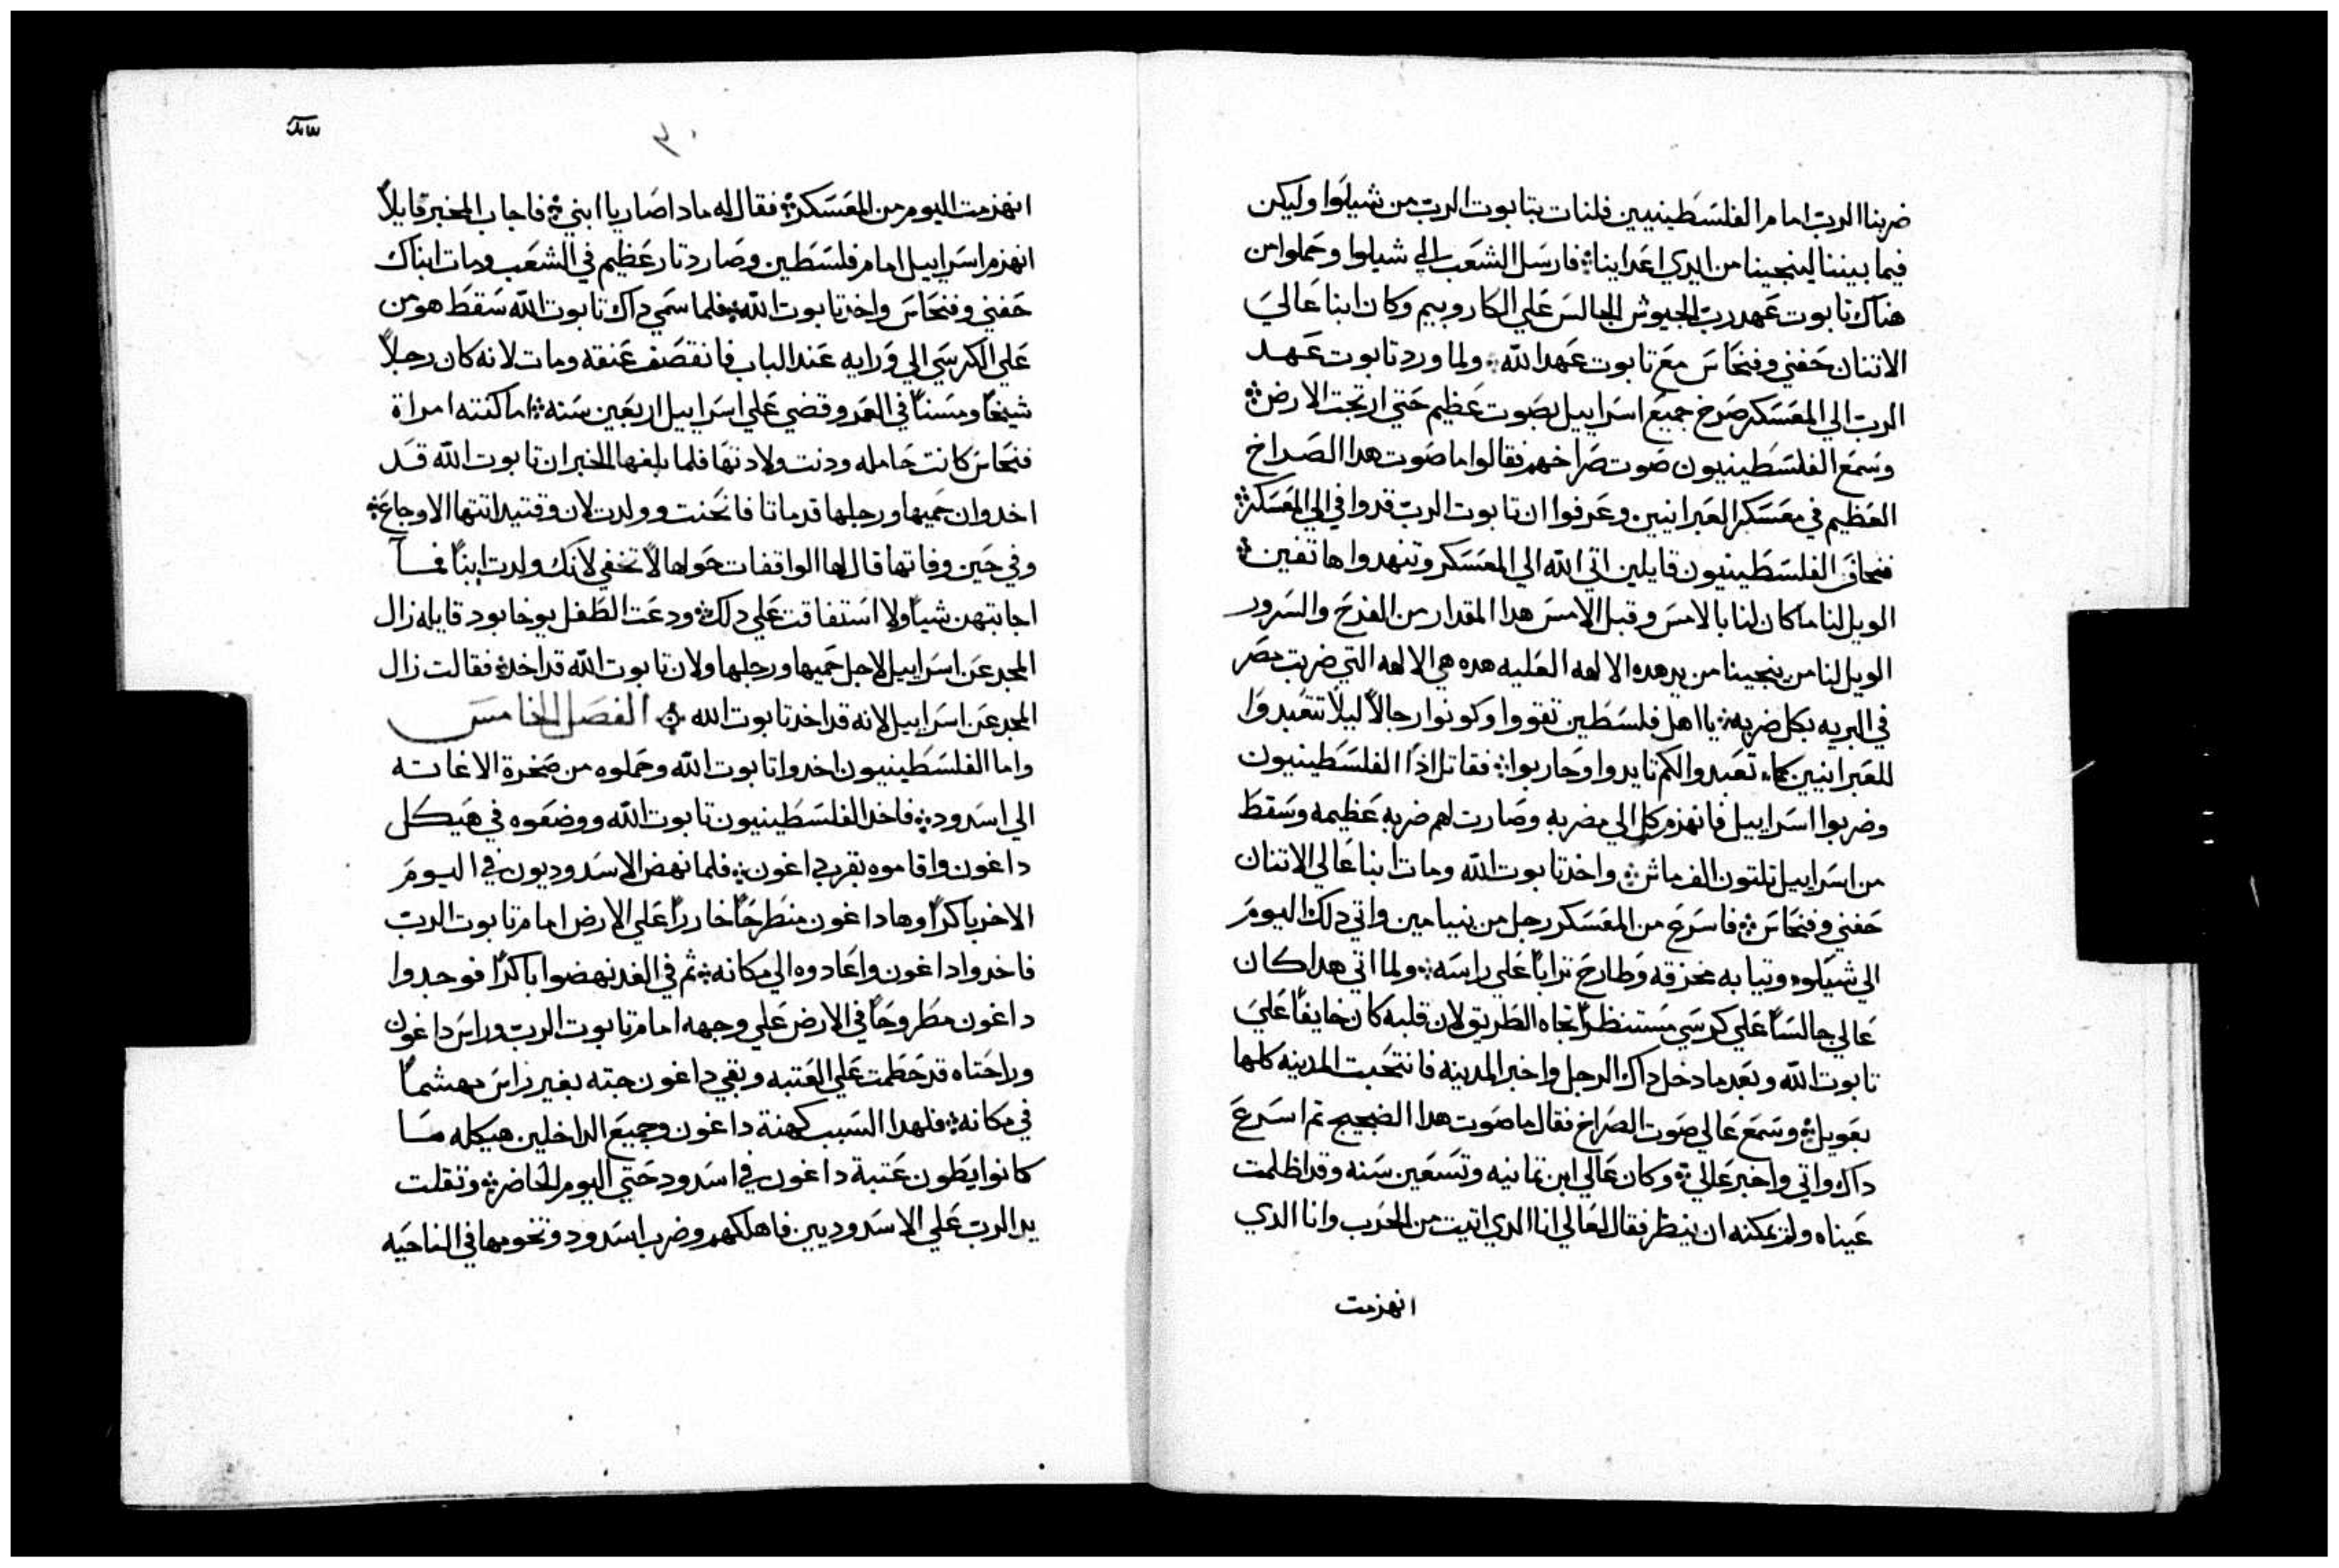 ضربنا الرب امام الفلسطينيين فلنات بتابوت الرب من شيلوا وليكن
فيما بيننا لينجينا من ايدي اعداينا فارسل الشعب الي شيلوا وحملوا من
هناك تابوت عهد رب الجيوش الجالس علي الكاروبيم وكان ابنا عالي
الاتنان حفني وفنحاس مع تابوت عهد الله ولما ورد تابوت عهد
الرب الي المعسكر صرخ جميع اسراييل بصوت عظيم حتي ارتجت الارض
وسمع الفلسطينيون صوت صراخهم فقالوا ما صوت هدا الصراخ
العظيم في معسكر العبرانيين وعرفوا ان تابوت الرب قد وافي الي المعسكر
فخاف الفلسطينيون قايلين اتي الله الي المعسكر وتنهدوا هاتفين
الويل لنا ما كان لنا بالامس وقبل الامس هدا المقدار من الفرح والسرور
الويل لنا من ينجينا من يد هده الالهه العليه هده هي الالهه التي ضربت مصر
في البريه بكل ضربه يا اهل فلسطين تقووا وكونوا رجالاً ليلا تتعبدوا
للعبرانيين كما تعبدوا لكم تايدوا وحاربوا فقاتل اذًا الفلسطينيون
وضربوا اسراييل فانهزم كل الي مضربه وصارت لهم ضربه عظيمه وسقط
من اسراييل تلتون الف ماش واخد تابوت الله ومات ابنا عالي الاتنان
حفني وفنحاس فاسرع من المعسكر رجل من بنيامين واتي دلك اليوم
الي شيلوا وتيابه مخرقه وطارح تراباً علي راسه ولما اتي هدا كان
عالي جالساً علي كرسي مستنظراً تجاه الطريق لان قلبه كان خايفاً علي
تابوت الله وبعد ما دخل داك الرجل واخبر المدينه فانتحبت المدينه كلها
بعويل وسمع عالي صوت الصراخ فقال ما صوت هدا الضجيج تم اسرع
داك واتي واخبر عالي وكان عالي ابن تمانيه وتسعين سنه وقد اظلمت
عيناه ولم يمكنه ان ينظر فقال لعالي انا الدي اتيت من الحرب وانا الدي
انهزمت
٣٠
انهزمت اليوم من المعسكر فقال له مادا صار يا ابني فاجاب المخبر قايلاً
انهزم اسراييل امام فلسطين وصار دتار عظيم في الشعب ومات ابناك
حفني وفنحاس واخد تابوت الله فلما سمي داك تابوت الله سقط هو من
علي الكرسي الي ورايه عند الباب فانقصف عنقه ومات لانه كان رجلاً
شيخاً ومسناً في العمر وقضي علي اسراييل اربعين سنه اما كنته امراة
فنحاس كانت حامله ودنت ولادتها فلما بلغها الخبر ان تابوت الله قد
اخد وان حميها ورجلها قد ماتا فانحنت وولدت لان وقتيد اتتها الاوجاع
وفي حين وفاتها قال لها الواقفات حولها لا تخفي لانك ولدت ابناً فما
اجابتهن شياً ولا استفاقت علي دلك ودعت الطفل يوخابود قايله زال
المجد عن اسراييل لاجل حميها ورجلها ولان تابوت الله قد اخد فقالت زال
المجد عن اسراييل لانه قد اخد تابوت الله الفصل الخامس
واما الفلسطينيون اخدوا تابوت الله وحملوه من صخرة الاغاته
الي اسدود فاخد الفلسطينيون تابوت الله ووضعوه في هيكل
داغون واقاموه بقرب داغون فلما نهض الاسدوديون في اليوم
الاخر باكراً وها داغون منطرحاً خاررًا علي الارض امام تابوت الرب
فاخدوا داغون واعادوه الي مكانه ثم في الغد نهضوا باكرًا فوجدوا
داغون مطروحاً في الارض علي وجهه امام تابوت الرب وراس داغون
وراحتاه قد حطمت علي العتبه وبقي داغون جته بغير راس مهشماً
في مكانه فلهدا السبب كهنة داغون وجميع الداخلين هيكله ما
كانوا يطون عتبة داغون في اسدود حتي اليوم الحاضر وتقلت
يد الرب علي الاسدوديين فاهلكهم وضرب اسدود وتخومها في الناحيه